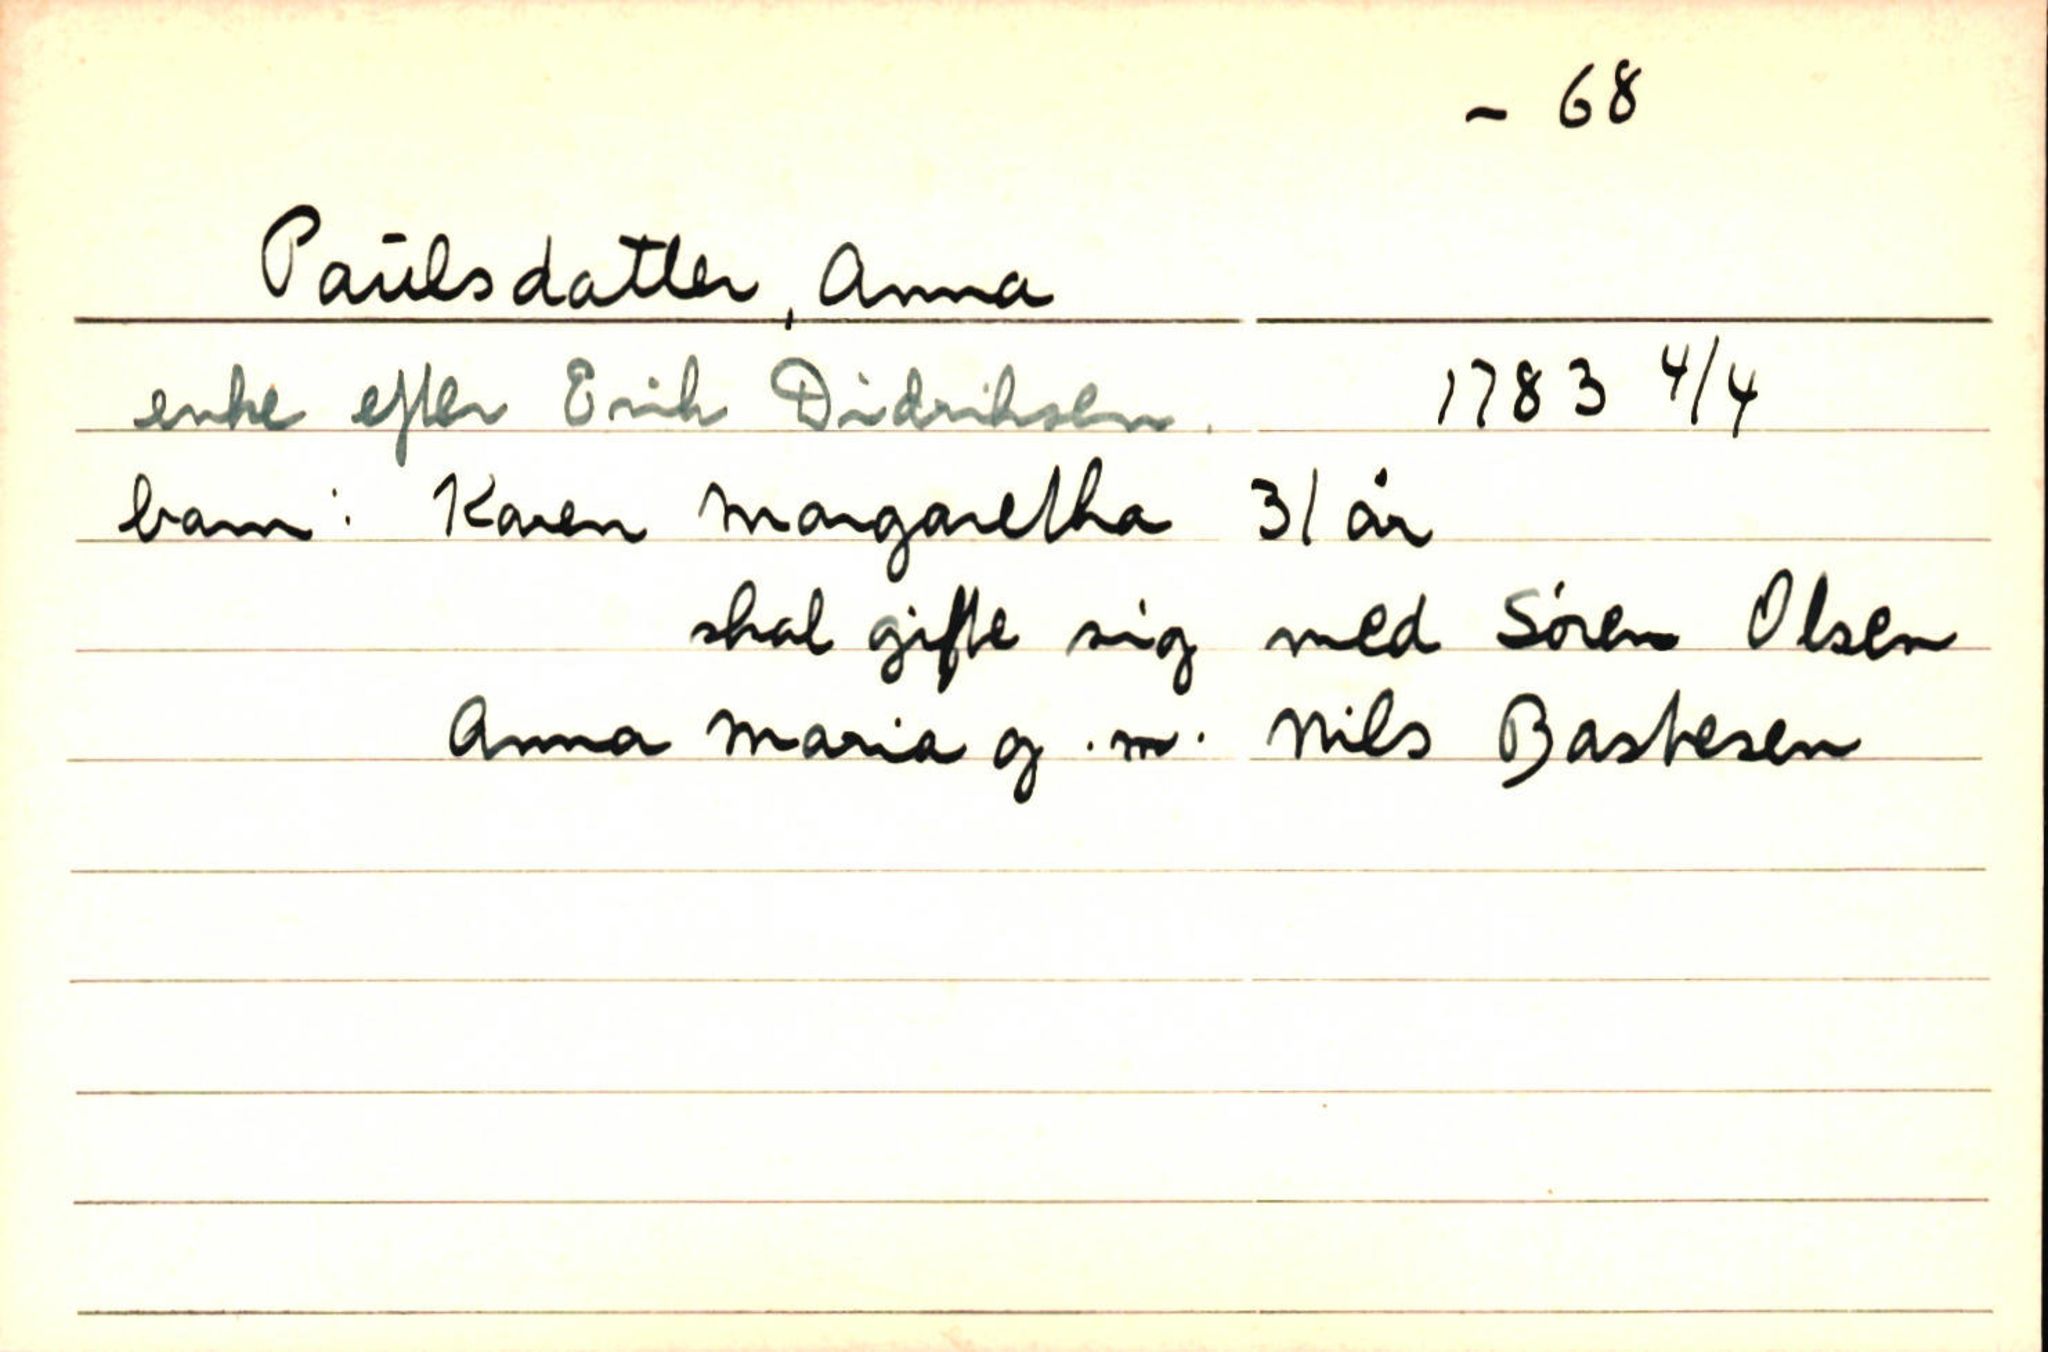 - 68
Paulsdatter, Anna
enke efter Erik Didriksen. 1783 4/4
barn: Karen Margaretha 31 år
skal gifte sig med Sören Olsen
Anna Maria g.m. Nils Bastesen